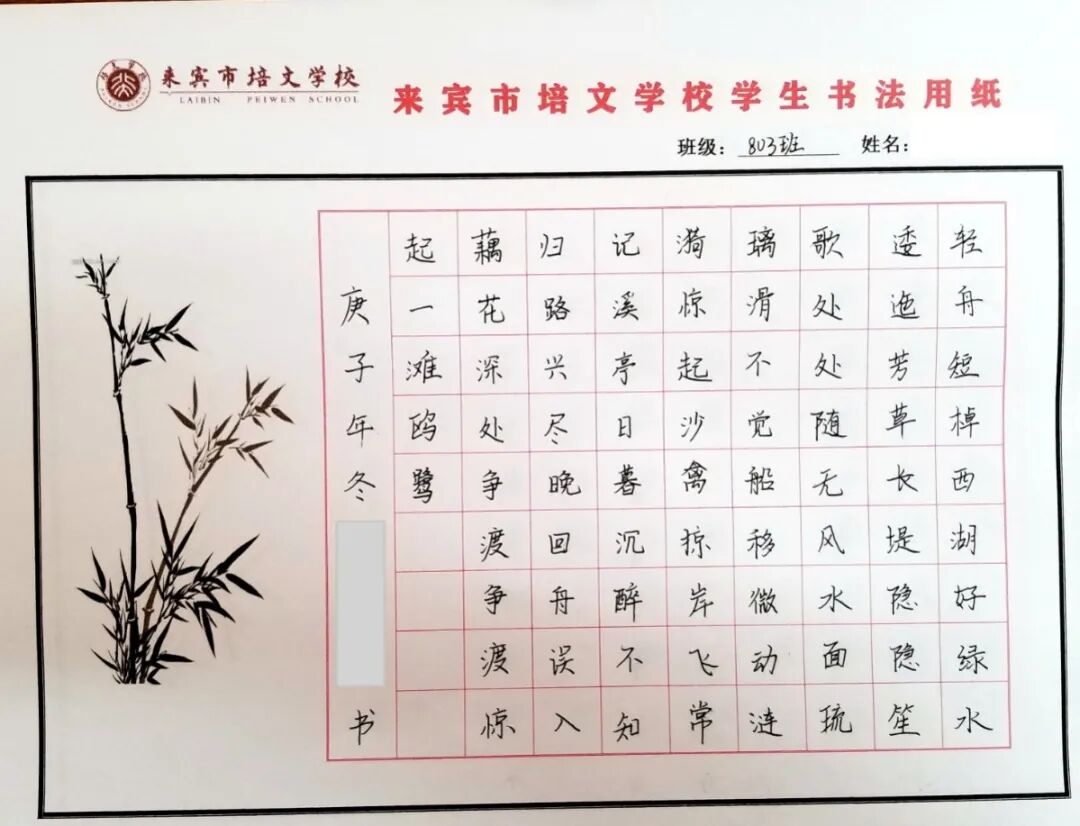 来宾市培文学校
LAIBIN PEIWEN SCHOOL
来宾市培文学校学生书法用纸
班级：803班 姓名：
轻舟短棹西湖好绿水
逶迤芳草长堤隐隐笙
歌处处随无风水面琉
璃滑不觉船移微动涟
漪惊起沙禽掠岸飞常
记溪亭日暮沉醉不知
归路兴尽晚回舟误入
藕花深处争渡争渡惊
起一滩鸥鹭
庚子年冬 书